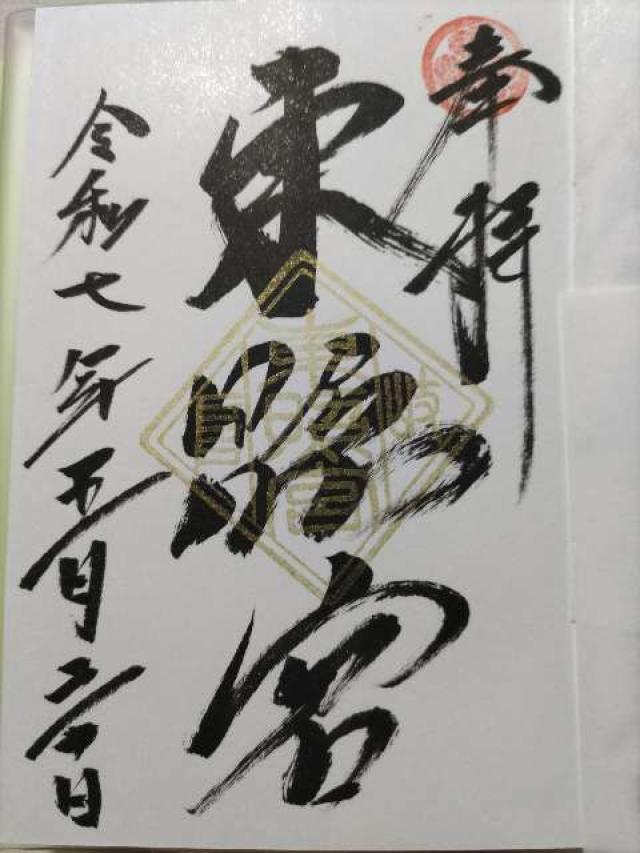 奉拝
東照宮
令和七年五月二十日